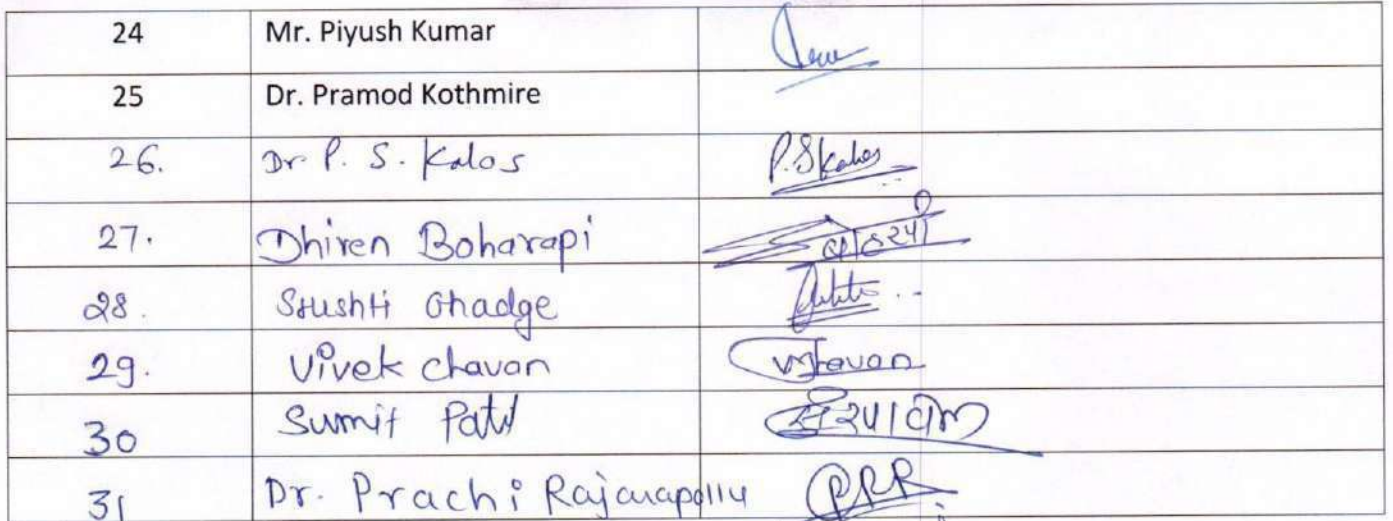 24 Mr. Piyush Kumar
25 Dr. Pramod Kothmire
26. Dr. P. S. Kalos P.Skalos
27. Dhiren Boharapi
28. Srushti Ghadge
29. Vivek chavan vchavan
30 Sumit Patil
31 Dr. Prachi Rajarapollu PRR